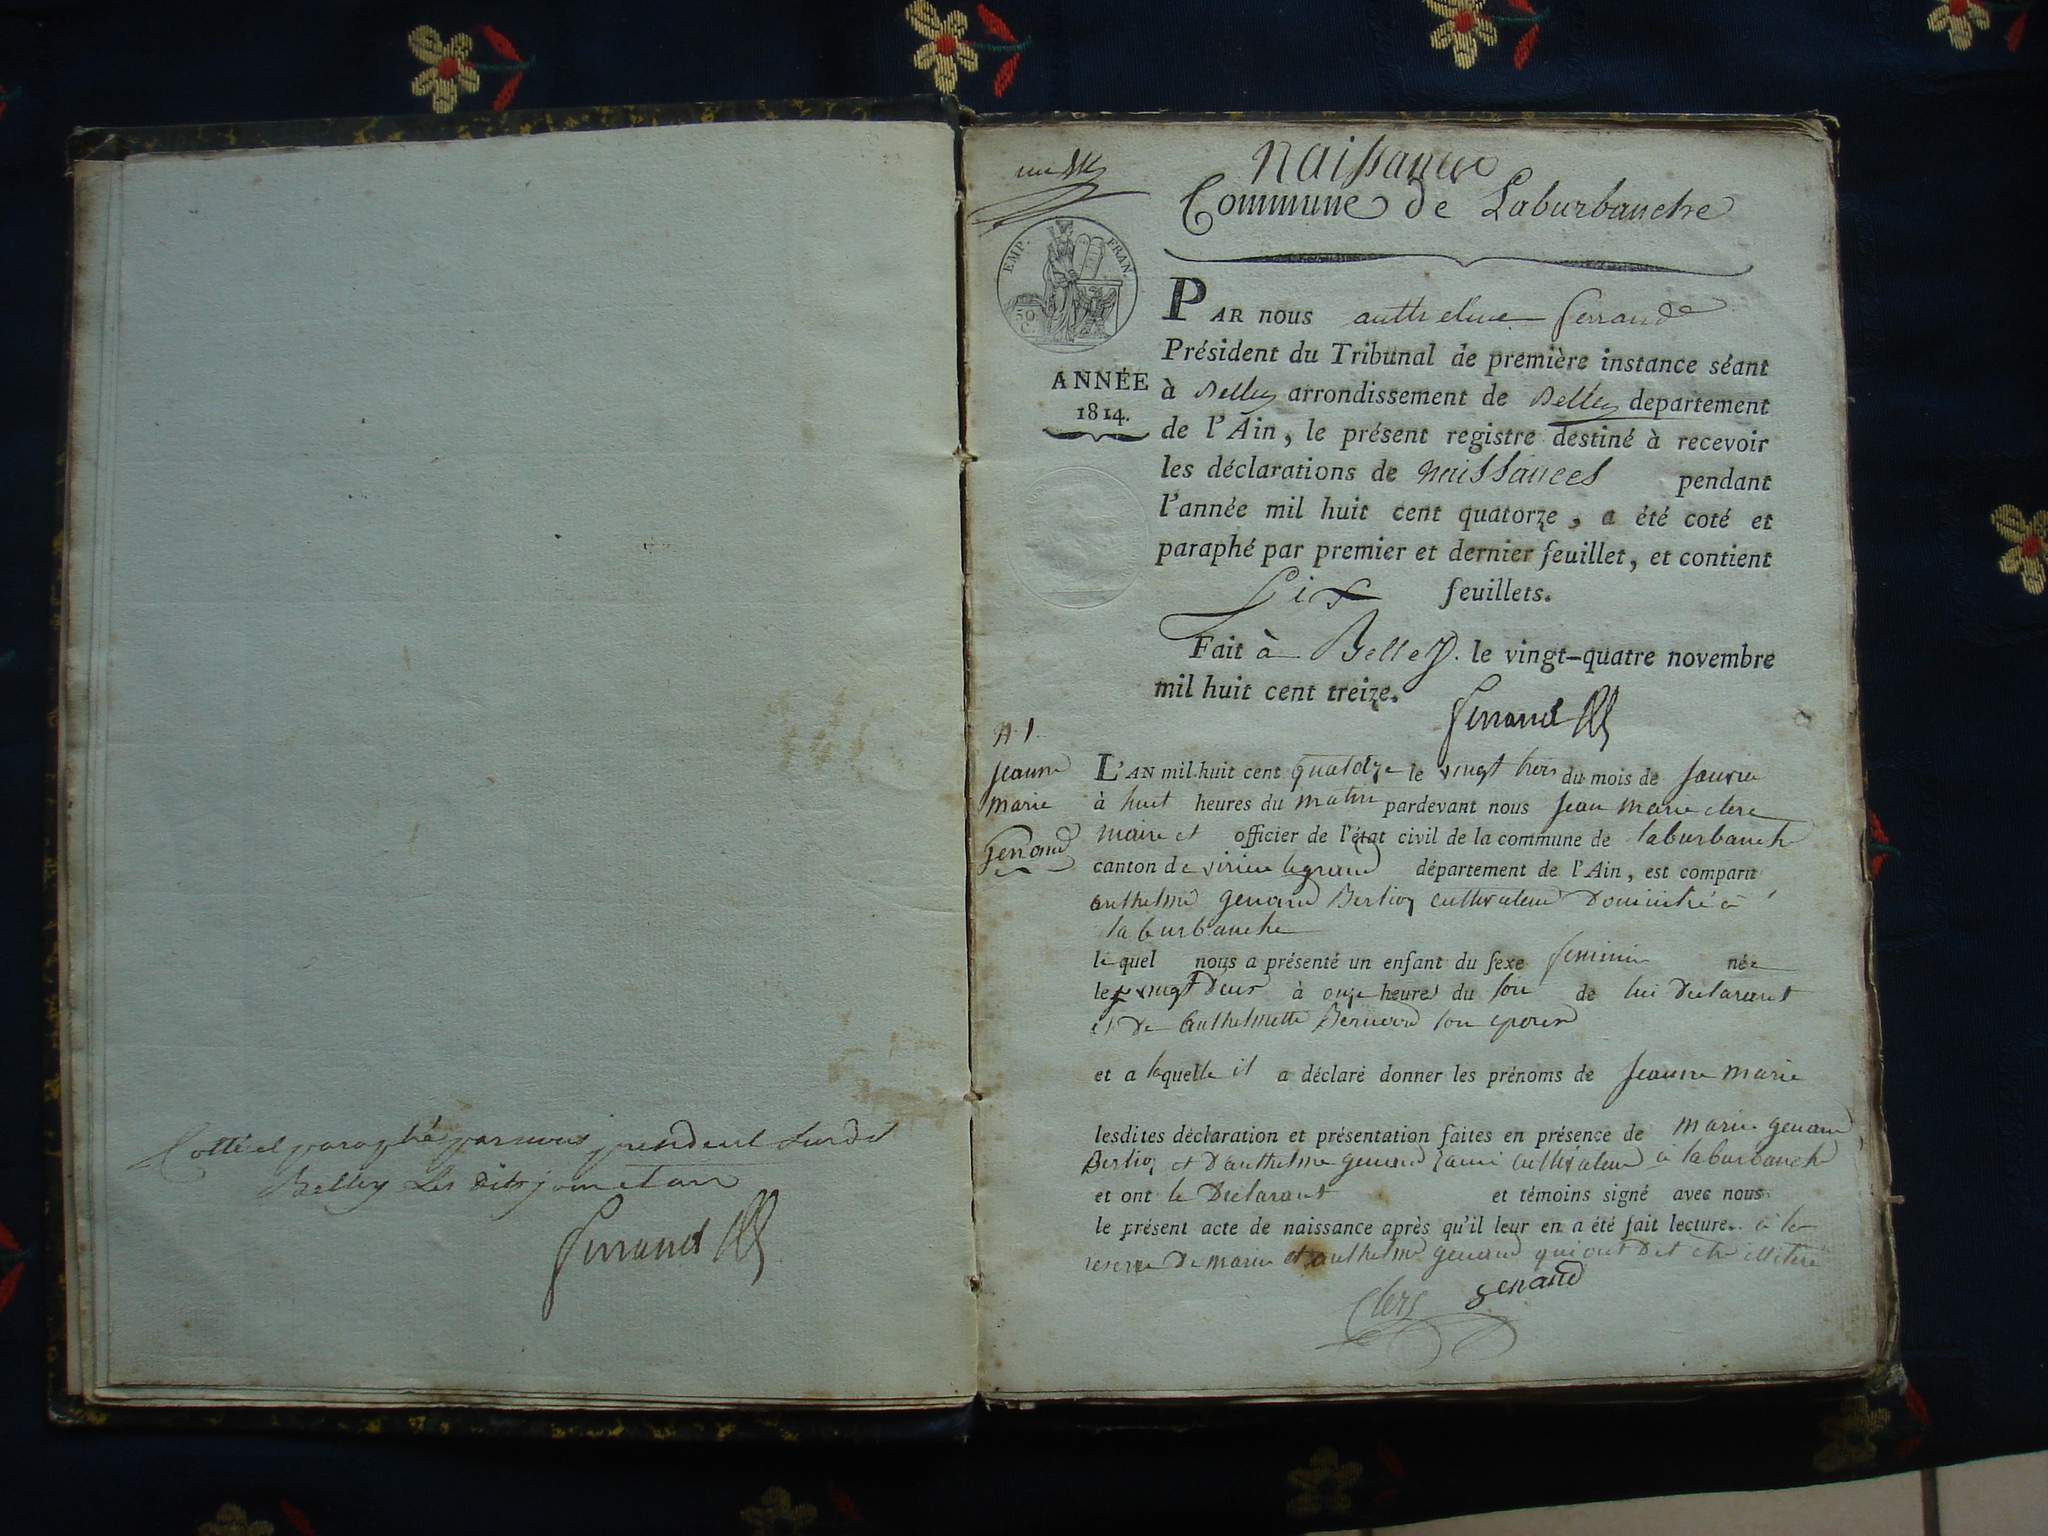 Cotté et paraphé par nous president susdit
Belley les dits jour et an
Ferrand
un
Naissance
Commune de Laburbanche
EMP. FRAN.
50
C.
ANNÉE
1814.
PAR nous anthelme ferrand
Président du Tribunal de première instance séant
à Belley arrondissement de Belley departement
de l'Ain, le présent registre destiné à recevoir
les déclarations de naissances pendant
l'année mil huit cent quatorze, a été coté et
paraphé par premier et dernier feuillet, et contient
Six feuillets.
Fait à Belley. le vingt-quatre novembre
mil huit cent treize.
Ferrand
N. 1
jeanne
marie
genand
L'AN mil huit cent quatorze le vingt trois du mois de janvier
à huit heures du matin pardevant nous jean marie clerc
maire et officier de l'état civil de la commune de laburbanche
canton de virieu legrand département de l'Ain, est comparu
anthelme genand Berlioz cultivateur Domicilié à
laburbanche
le quel nous a présenté un enfant du sexe feminin née
le vingt Deux à onze heures du soir de lui Declarant
et De Anthelmette Bernard son epouse
et a laquelle il a déclaré donner les prénoms de jeanne marie
lesdites déclaration et présentation faites en présence de marie genand
Berlioz et D'anthelme genand cultivateur à laburbanche
et ont le Declarant et témoins signé avec nous
le présent acte de naissance après qu'il leur en a été fait lecture. à la
reserve De marie et anthelme genand qui ont Dit etre illitere
Clerc genand